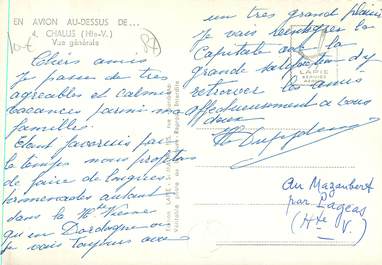 EN AVION AU-DESSUS DE...
4. CHALUS (Hte-V.)
Vue générale
Chers amis
Je passe de très
agréables et calmes
vacances parmi ma
famille.
Etant favorisés par
le temps nous profitons
de faire de longues
promenades autant
dans la Hte Vienne
qu'en Dordogne où
je vais toujours avec
un très grand plaisir
Je vais réintégrer la
Capitale avec la
grande satisfaction d'y
retrouver les amis
affectueusement à vous
deux
LAPIE
Au Mazaubert
par Lageas
(Hte V.)